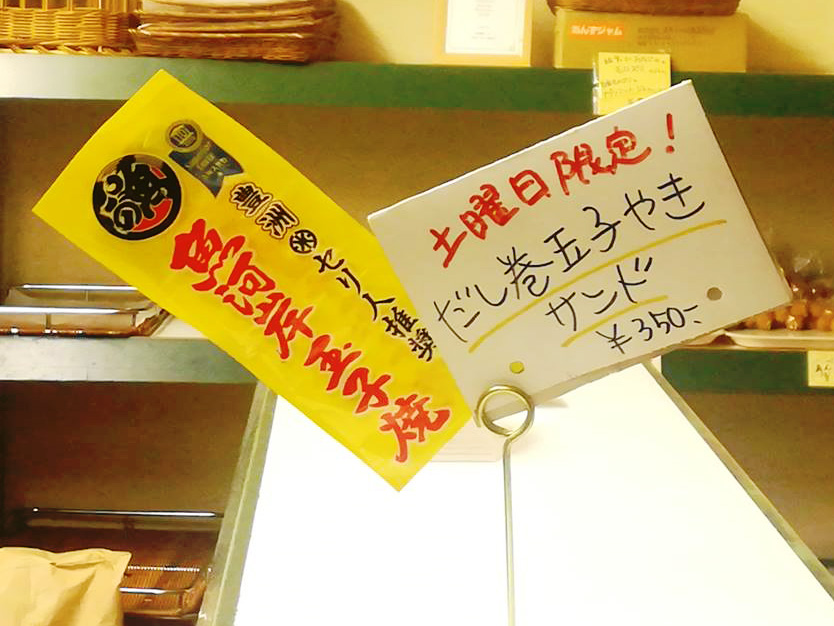 豊洲 セリ人推奨
魚河岸玉子焼
土曜日限定!
だし巻玉子やき
サンド
¥350-